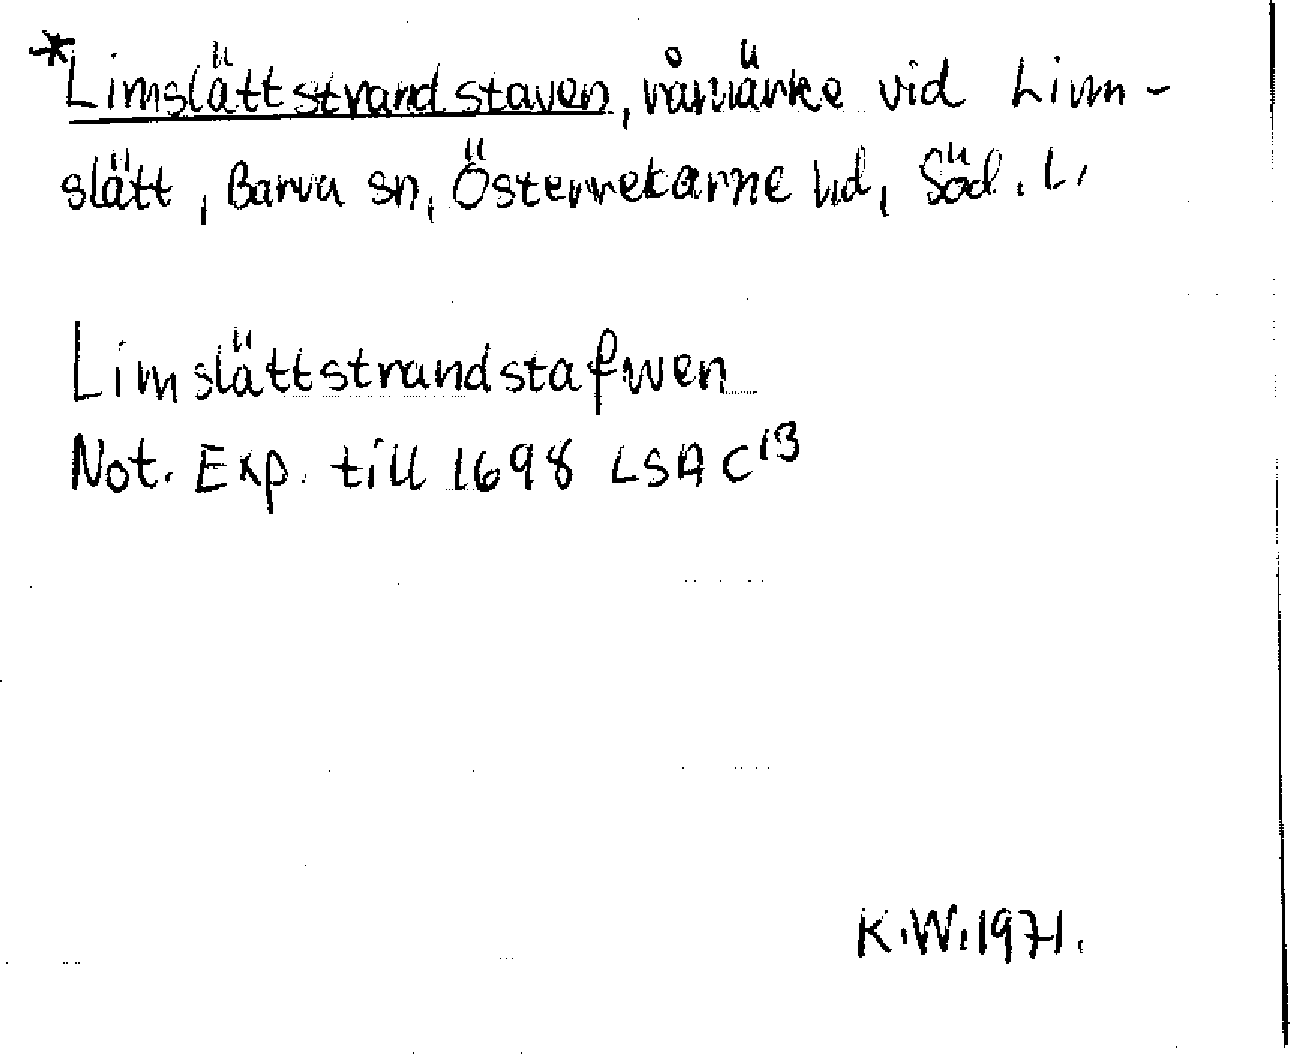 *Limslättstrandstaven, råmärke vid Lim-
slätt, Barva sn, Österrekarne hd, Söd. L.
Limslättstrandstafwen
Not. Exp. till 1698 LSA C¹³
K.W. 1971.